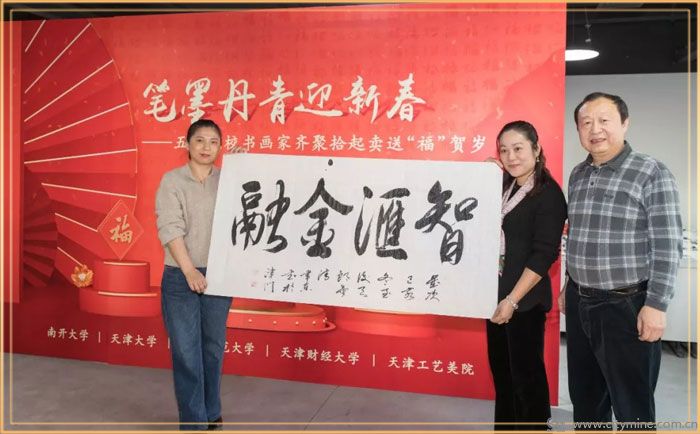 笔墨丹青迎新春
——五校书画家齐聚拾起卖送“福”贺岁
智匯金融
歲次
己亥
冬至
津門
福
南开大学 | 天津大学 | 范大学 | 天津财经大学 | 天津工艺美院
www.citymine.com.cn